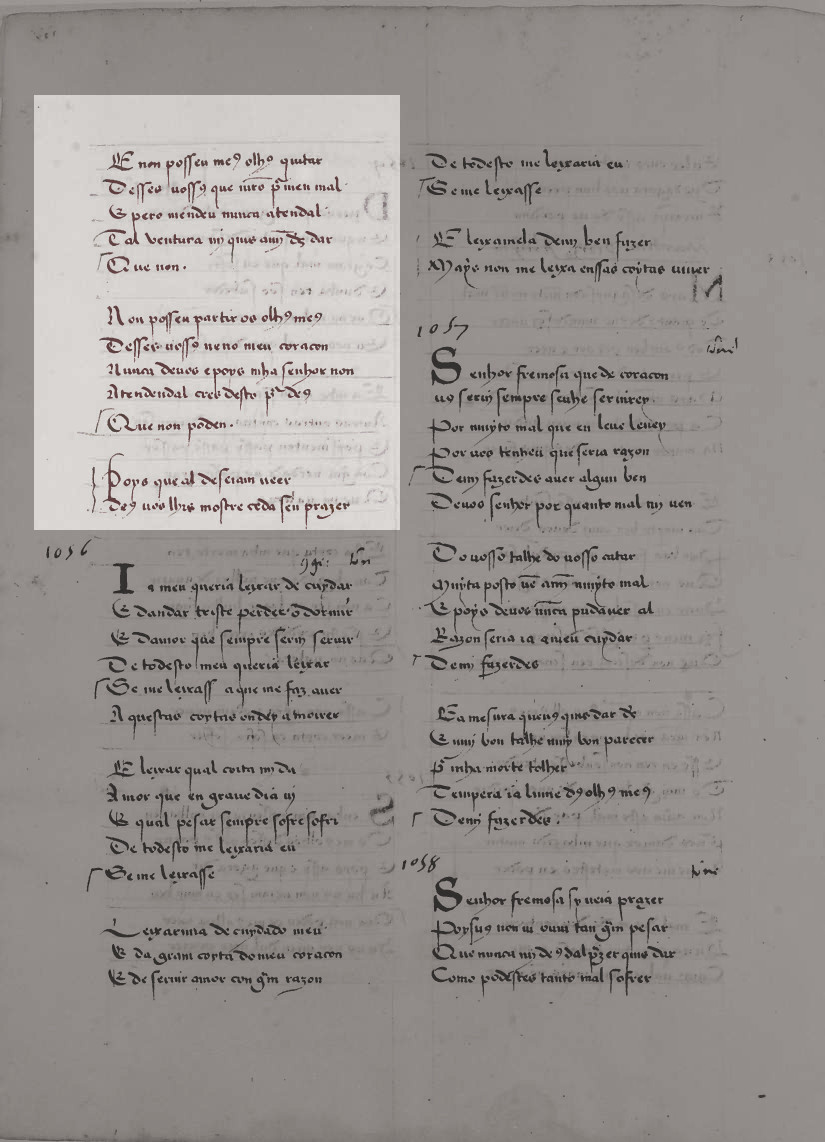 E non posseu me9 olh9 quitar
Desses uoss9 que uirõ p̃ meu mal
E pero mendeu nunca atendal
Tal ventura mj quis amj d̃s dar
Que non.
Non posseu partir os olh9 me9
Desses uoss9 neno meu coracon
Nunca deuos e poys mha senhor non
Atendendal cres desto p̃r de9
Que non poden.
Poys que al deseiam ueer
De9 uos lhis mostre ceda seu prazer
1056
Ia meu queria leixar de cuydar
E dandar triste perder o dormir
E damor que sempre seruj seruir
De todesto meu queria leixar
Se me leixass a que me faz auer
Aquestas coytas ondey a moirer
E leixar qual coita mj da
Amor que en graue dia uj
E qual pesar sempre sofre sofri
De todesto me leixaria eu
Se me leixasse
Leixarmia de cuydado meu
E da gram coyta do meu coracon
E de seruir amor con grm̃ razon
De todesto me leyxaria eu
Se me leyxasse
E leixamela demj ben fazer
Mays non me leixa enssas coytas uiuer
1057
Senhor fremosa que de coracon
uos seruj sempre seuhe seruirey
Por muyto mal que en leue leuey
Por uos tenheu que seria razon
Demj fazerdes auer alguu ben
Deuos senhor por quanto mal mj uen
Do uosso talhe do uosso catar
Muyta posto ue amj muyto mal
E poys deuos nũca pudauer al
Razon seria ia a meu cuydar
Demj fazerdes
Ea mesura queu9 quis dar de9
E muj bon talhe muy bon parecer
Pr̃ mha morte tolher
Tempera ia lume d9 olh9 me9
Demj fazerdes.
1058
Senhor fremosa sy ueia prazer
Poysu9 non uj ouui tan grm̃ pesar
Que nunca mj de9 dal p̃zer quis dar
Como podestes tanto mal sofrer